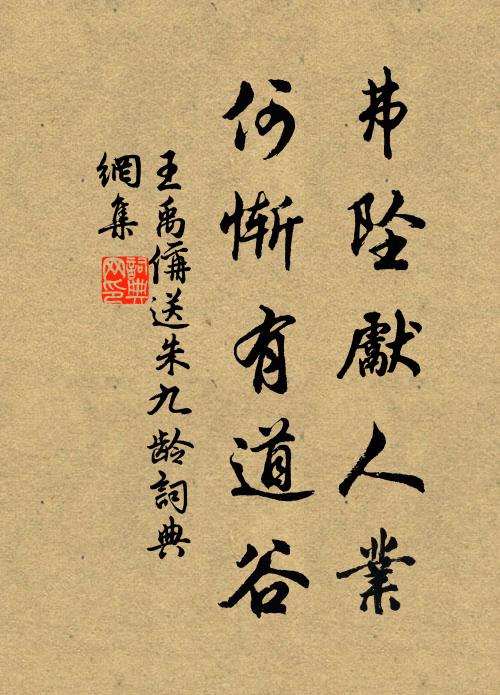 弗坠獻人業
何慚有道谷
王禹偁送朱九龄詞典
網集
詞典网印